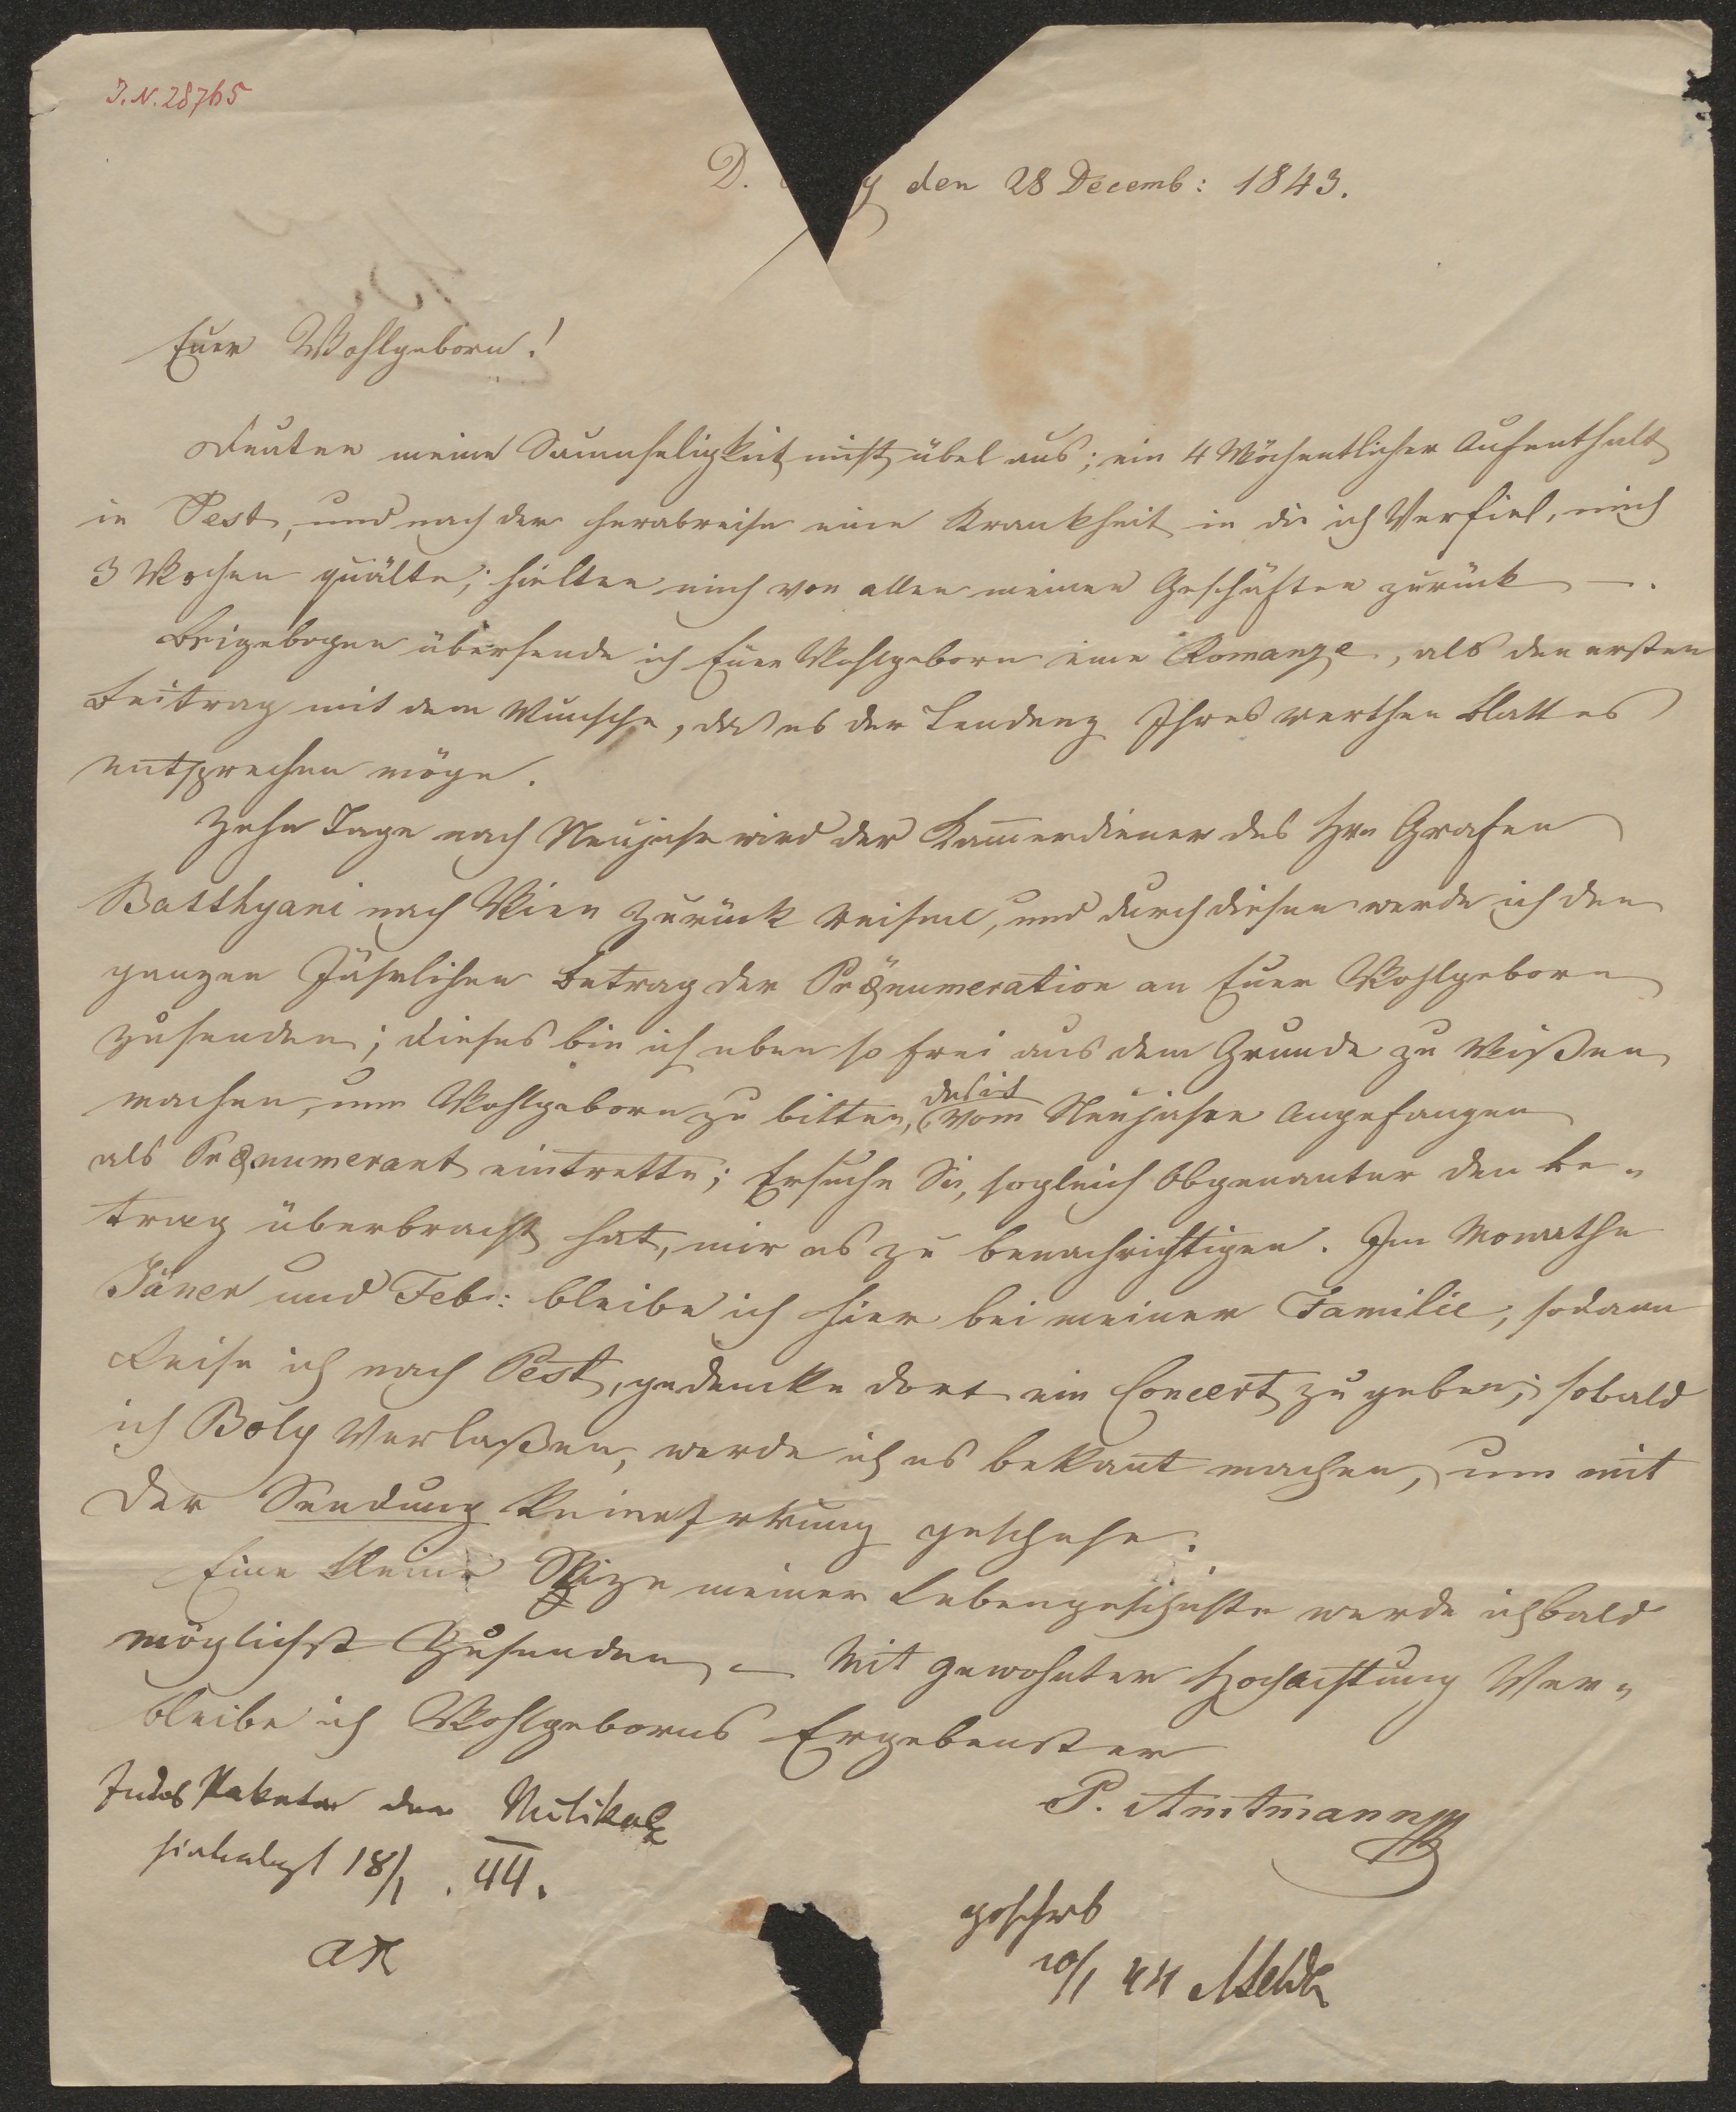 I.N. 28765
D. y den 28 Decemb: 1843.
Euer Wohlgeborn!
Deuten meine Saumseligkeit nicht übel aus; ein 4 Wöchentlicher Aufenthalt
in Pest, und nach der herabreise eine Krankheit in die ich Verfiel, mich
3 Wochen quälte; hielten mich von allen meinen Geschäften zurück —.
Beigebogen übersende ich Euer Wohlgeborn eine Romanze, als den ersten
Beitrag mit dem Wunsche, daß es der Tendenz Ihres werthen Blattes
entsprechen möge.
Zehn Tage nach Neujahr wird der Kam̅erdiener des Hrn Grafen
Batthyani nach Wien zurück reisen, und durch diesen werde ich den
ganzen Jährlichen Betrag der Prænumeration an Euer Wohlgeborn
zusenden; dieses bin ich eben so frei aus dem Grunde zu Wißen
machen, um Wohlgeborn zu bitten, daß ich vom Neujahre Angefangen
als Prænumerant eintrette; Ersuche Sie, sogleich Obgenanter den Be-
trag überbracht hat, mir es zu benachrichtigen. Im Monathe
Jäner und Feb: bleibe ich hier bei meiner Familie, sodann
Reise ich nach Pest, gedencke dort ein Concert zu geben; sobald
ich Boly Verlaßen, werde ich es bekant machen, um mit
der Sendung keine Irrung geschehe.
Eine kleine Skize meiner Lebengeschichte werde ich bald
möglichst Zusenden — Mit gewohnter Hochachtung Ver-
bleibe ich Wohlgeborns Ergebenster
P. Amtmann
den Musikal
18/1 . 44.
AR
geschrb
10/1 44